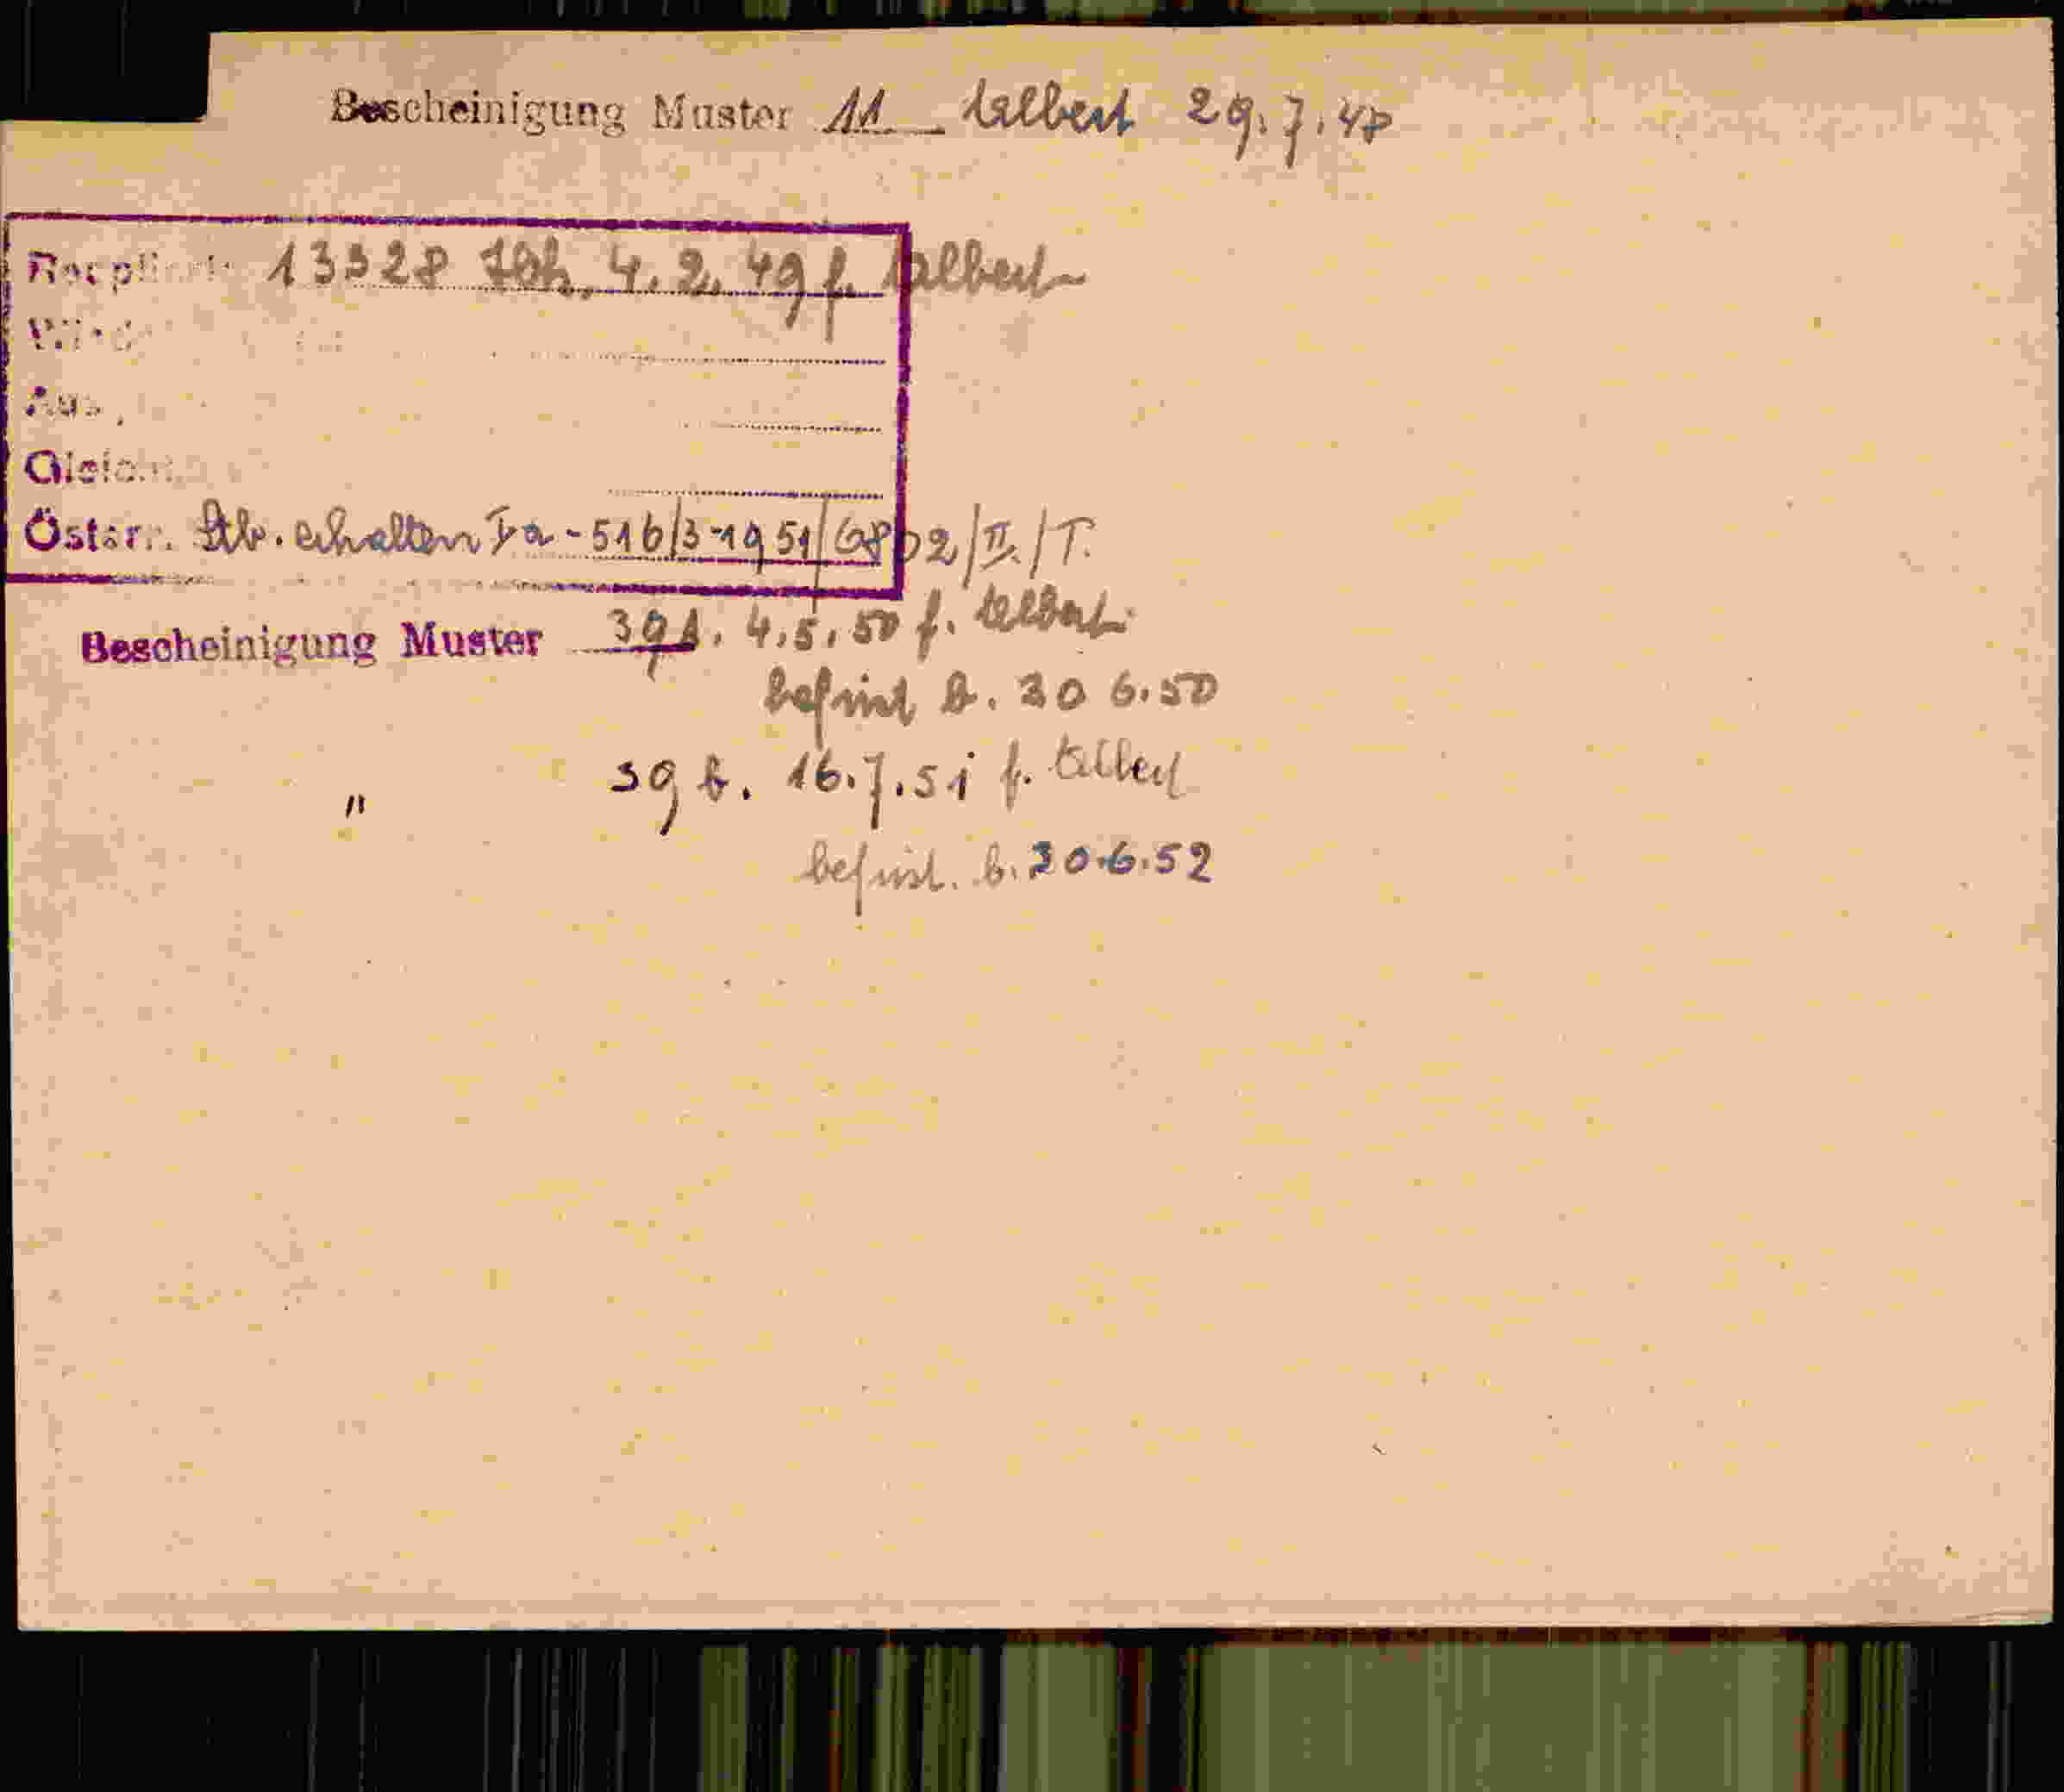 Bescheinigung Muster 11 selbert 29.7.48
13328 4.2.49 f. selbert
Gleich
Österr. Stb. erhalten Ia-516/3-1951/6802/II./T.
Bescheinigung Muster 391. 4.5.50 f. selbert
befrist b. 30 6.50
" 39 b. 16.7.51 f. selbert
befrist. b. 30.6.52